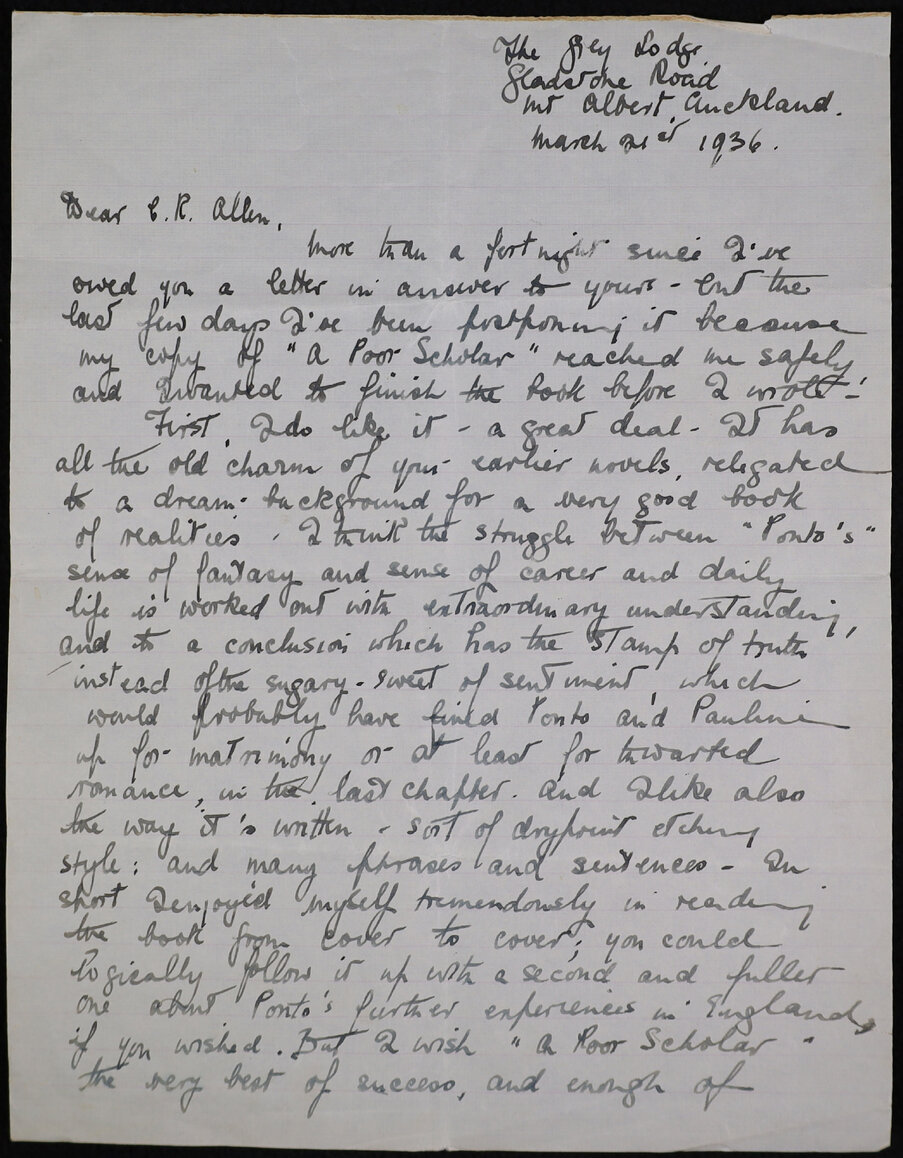 The Grey Lodge
Gladstone Road
Mt Albert, Auckland.
March 21st 1936.
Dear C. R. Allen,
More than a fortnight since I've
owed you a letter in answer to yours - but the
last few days I've been postponing it because
my copy of "A Poor Scholar" reached me safely
and I wanted to finish the book before I wrote -
First, I do like it - a great deal - It has
all the old charm of your earlier novels, relegated
to a dream-background for a very good book
of realities. I think the struggle between "Ponto's"
sense of fantasy and sense of career and daily
life is worked out with extraordinary understanding,
and to a conclusion which has the stamp of truth
instead of the sugary-sweet of sentiment, which
would probably have fined Ponto and Pauline
up for matrimony or at least for thwarted
romance, in the last chapter. And I like also
the way it's written - sort of drypoint etching
style: and many phrases and sentences - In
short I enjoyed myself tremendously in reading
the book from cover to cover; you could
logically follow it up with a second and fuller
one about Ponto's further experiences in England,
if you wished. But I wish "A Poor Scholar"
the very best of success, and enough of